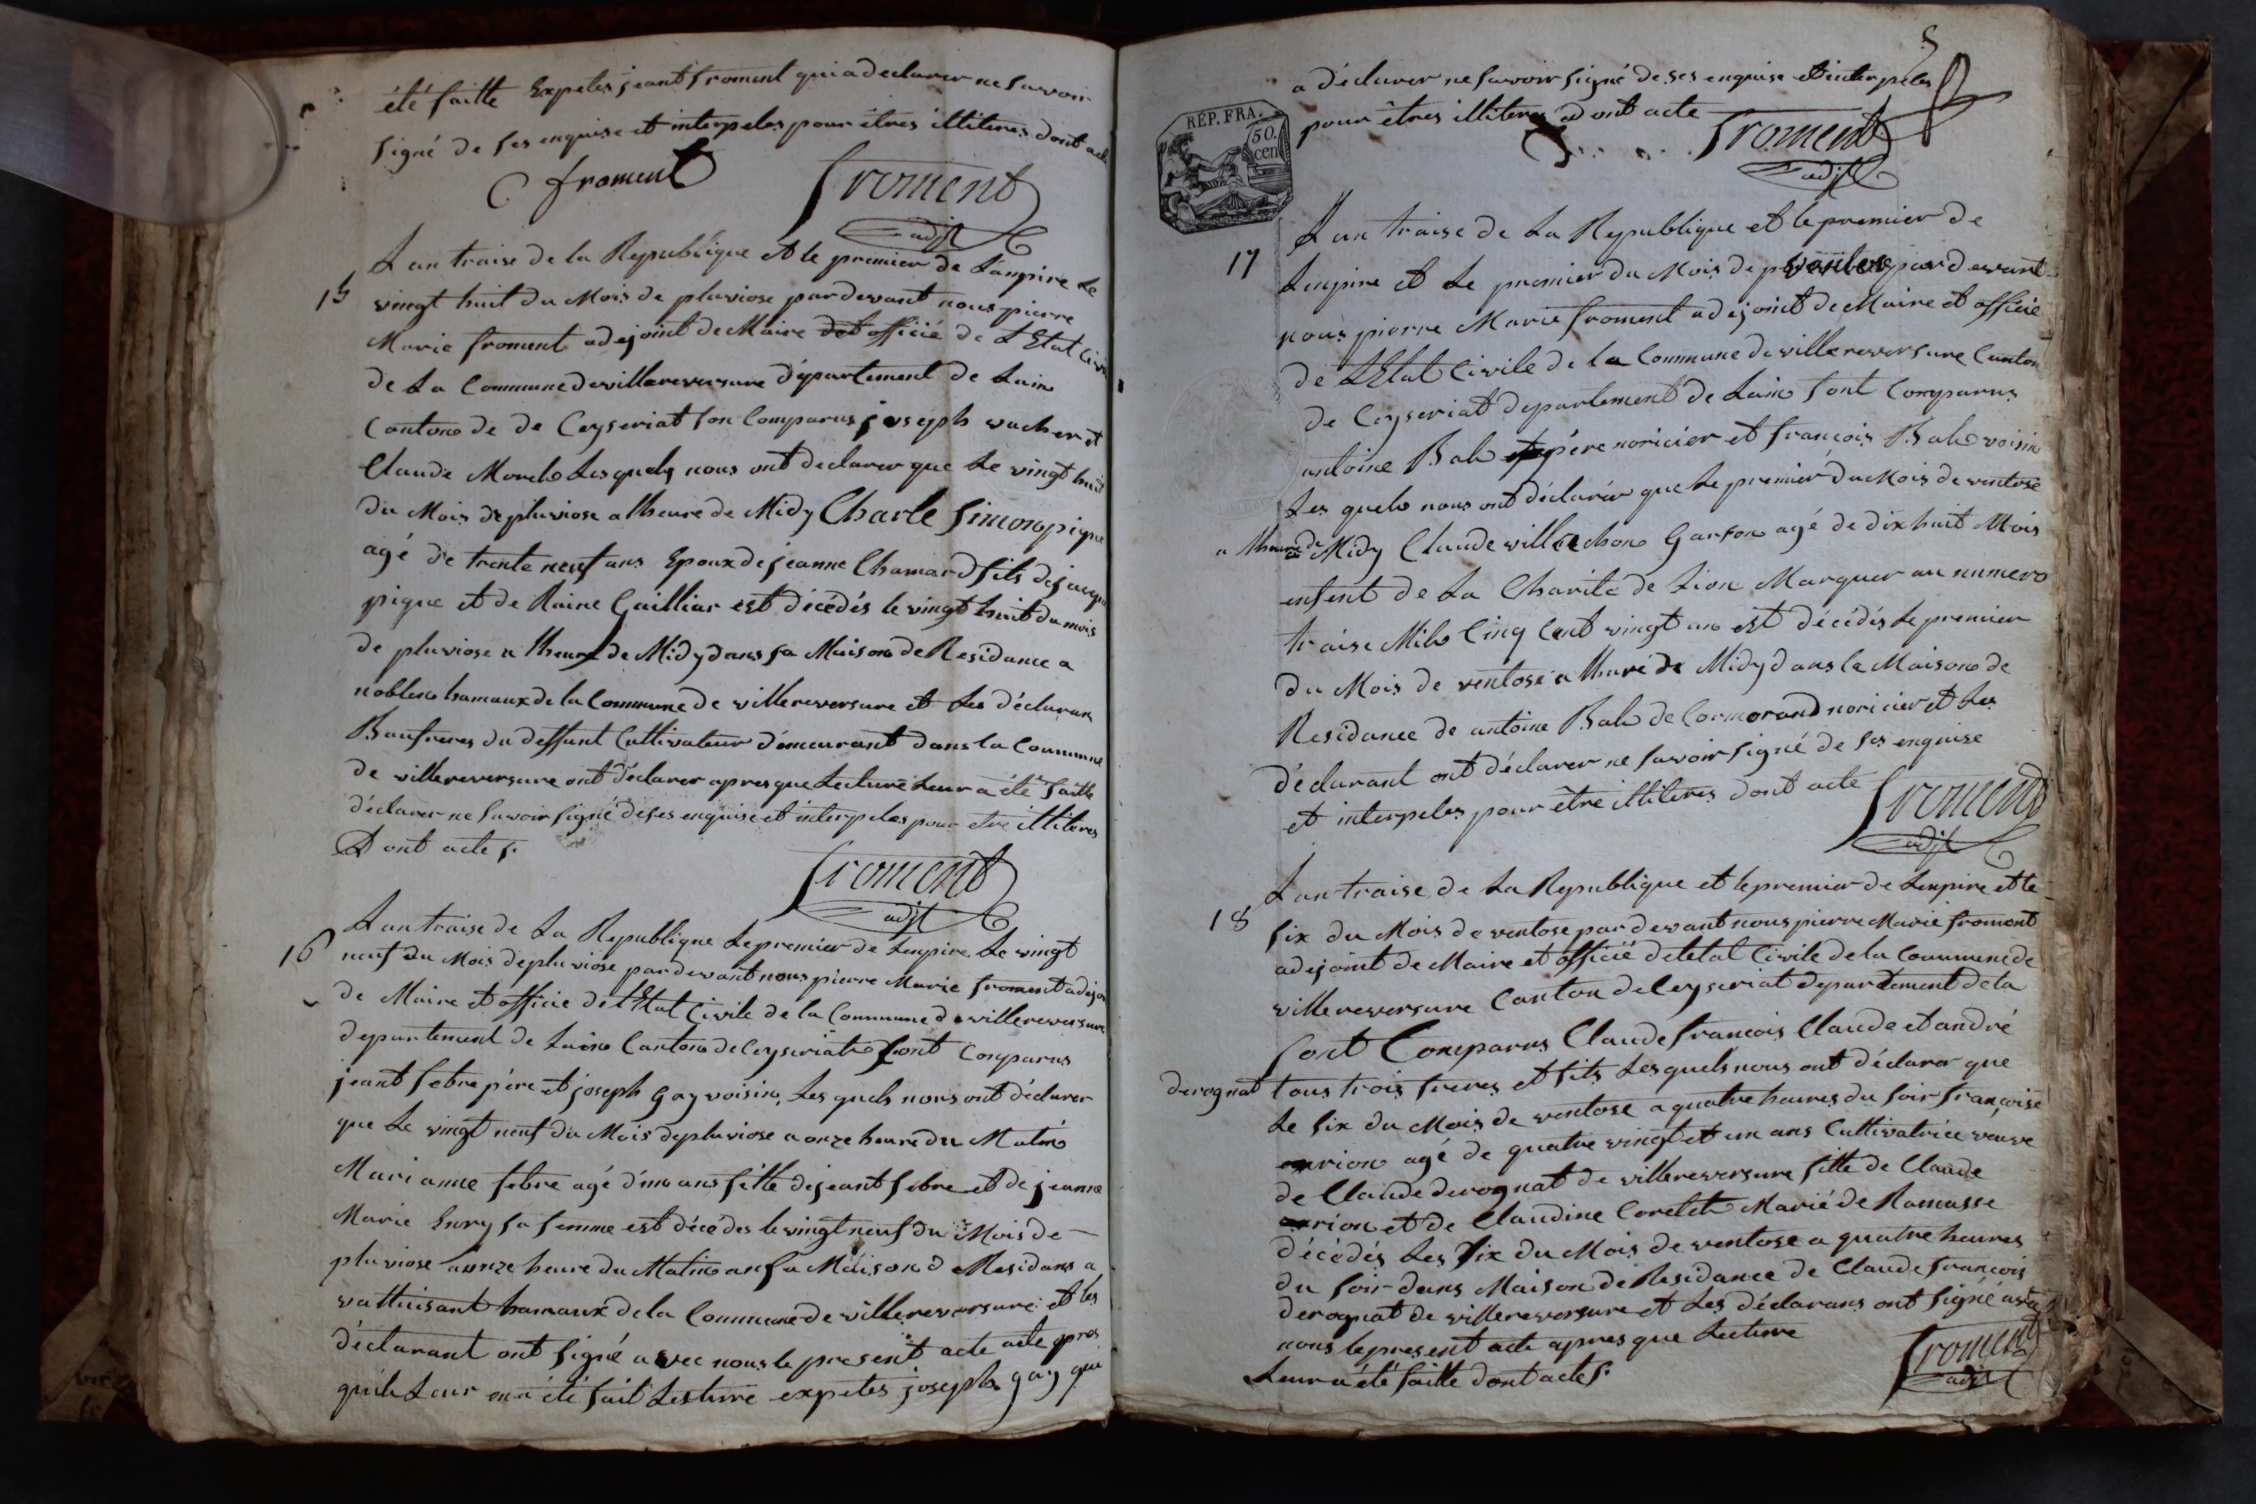 été faitte Expetes jeant froment qui a declarer ne savoir
signé de ses enquise et interpelas pour êtres illiteres dont acte
froment
froment
adjt
15
L an traise de la Republique et le premier de L'ampire Le
vingt huit du Mois de pluviose pardevant nous pierre
Marie froment adejoint de Maire et officié de L'Etat Civil
de La Commune de villereversure département de Lain
Cantono de de Ceyseriat son Comparus joseph vucher et
Claude Morelo Lesquels nous ont declarer que Le vingt huit
du Mois de pluviose a lheure de Midy Charle Simon pique
agé de trente neuf ans Epoux de jeanne Chamard fils de jacque
pique et de Raine Gailliar est décédés le vingt huit du mois
de pluviose a lheure de Midy dans sa Maisono de Residance a
noblens hamaux de la Commune de villereversure et Les déclarans
Baufreres du deffunt Cultivateur démeurant dans la Commune
de villereversure ont déclarer apres que Lecture Leur a été faitte
déclarer ne savoir signé de ses enquise et interpelas pour etre illiteres
Dont acte s.
froment
adjt
16
L an traise de La Republique Le premier de Lenpire Le vingt
neuf du Mois de pluviose pardevant nous pierre Marie froment adejoin
de Maire et officie de L'Etat Civile de la Commune de villereversure
departement de Laino Cantono de Ceyseriat sont Comparus
jeant febre pére et joseph Gay voisin, Les quels nous ont déclarer
que Le vingt neuf du Mois de pluviose a onze heure du Matino
Mari anne febre agé d'uno ans fille de jeant febre et de jeanne
Marie Enry sa femme est décédes le vingt neuf du Mois de
pluviose a onze heure du Matino an sa Maisono de Residans a
vattuisant hamaux de la Commune de villereversure et les
déclarant ont signé avec nous le present acte acte apres
quile Leur en a été fait Lesture expetes joseph Gay que
5
a déclarer ne savoir signé de ses enquise et interpelas
pour êtres illiteres dont acte
froment
adjt
RÉP. FRA.
50.
cen
17
L an traise de La Republique et le premier de
Lenpire et Le premier du Mois de ventose pardevant
nous pierre Marie froment adejoint de Maire et officié
de L'Etat Civile de la Commune de villereversure Canton
de Ceyseriat departement de Laino sont Comparus
antoine Balo pére noricier et francois Balo voisin
Les quels nous ont déclarér que Le premier du Mois de ventose
a lheure de Midy Claude villechon Garsono agé de dix huit Mois
enfent de La Charité de Lion Marquer au numero
traise Mile Cinq Cent vingt un est décédés Le premier
du Mois de ventose a lhure de Midy dans la Maisono de
Residance de antoine Balo de Cormorand noricier et Les
déclarant ont déclarer ne savoir signé de ses enquise
et interpelas pour être illiteres dont acte
froment
adjt
18
L an traise de La Republique et le premier de Lenpire et le
six du Mois de ventose pardevant nous pierre Marie froment
adejoint de Maire et officié de letat Civile de la Commune de
villereversure Canton de Ceyseriat departement de la
sont Comparus Claude francois Claude et andré
derognat tous trois freres et fils Les quels nous ont déclarer que
Le six du Mois de ventose a quatre heures du soir francoise
rion agé de quatre vingt et un ans Cultivatrice veuve
de Claude derognat de villereversure fille de Claude
rion et de Claudine Corelet Marié de Ramasse
décédés Les six du Mois de ventose a quatre heures
du soir dans Maison de Residance de Claude francois
derognat de villereversure et Les déclarans ont signé avec
nous le present acte apres que Lecture
Leur a été faitte dont acte s.
froment
adjt